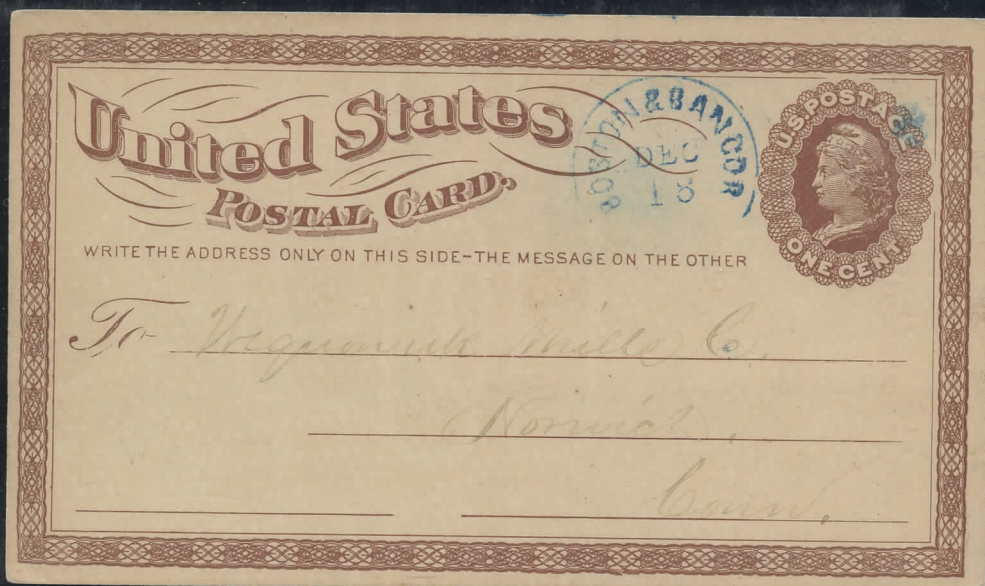 United States
POSTAL CARD.
BOSTON & BANGOR
DEC
18
U.S. POSTAGE
ONE CENT
WRITE THE ADDRESS ONLY ON THIS SIDE–THE MESSAGE ON THE OTHER
To Mills Co.
Norwich.
Conn.